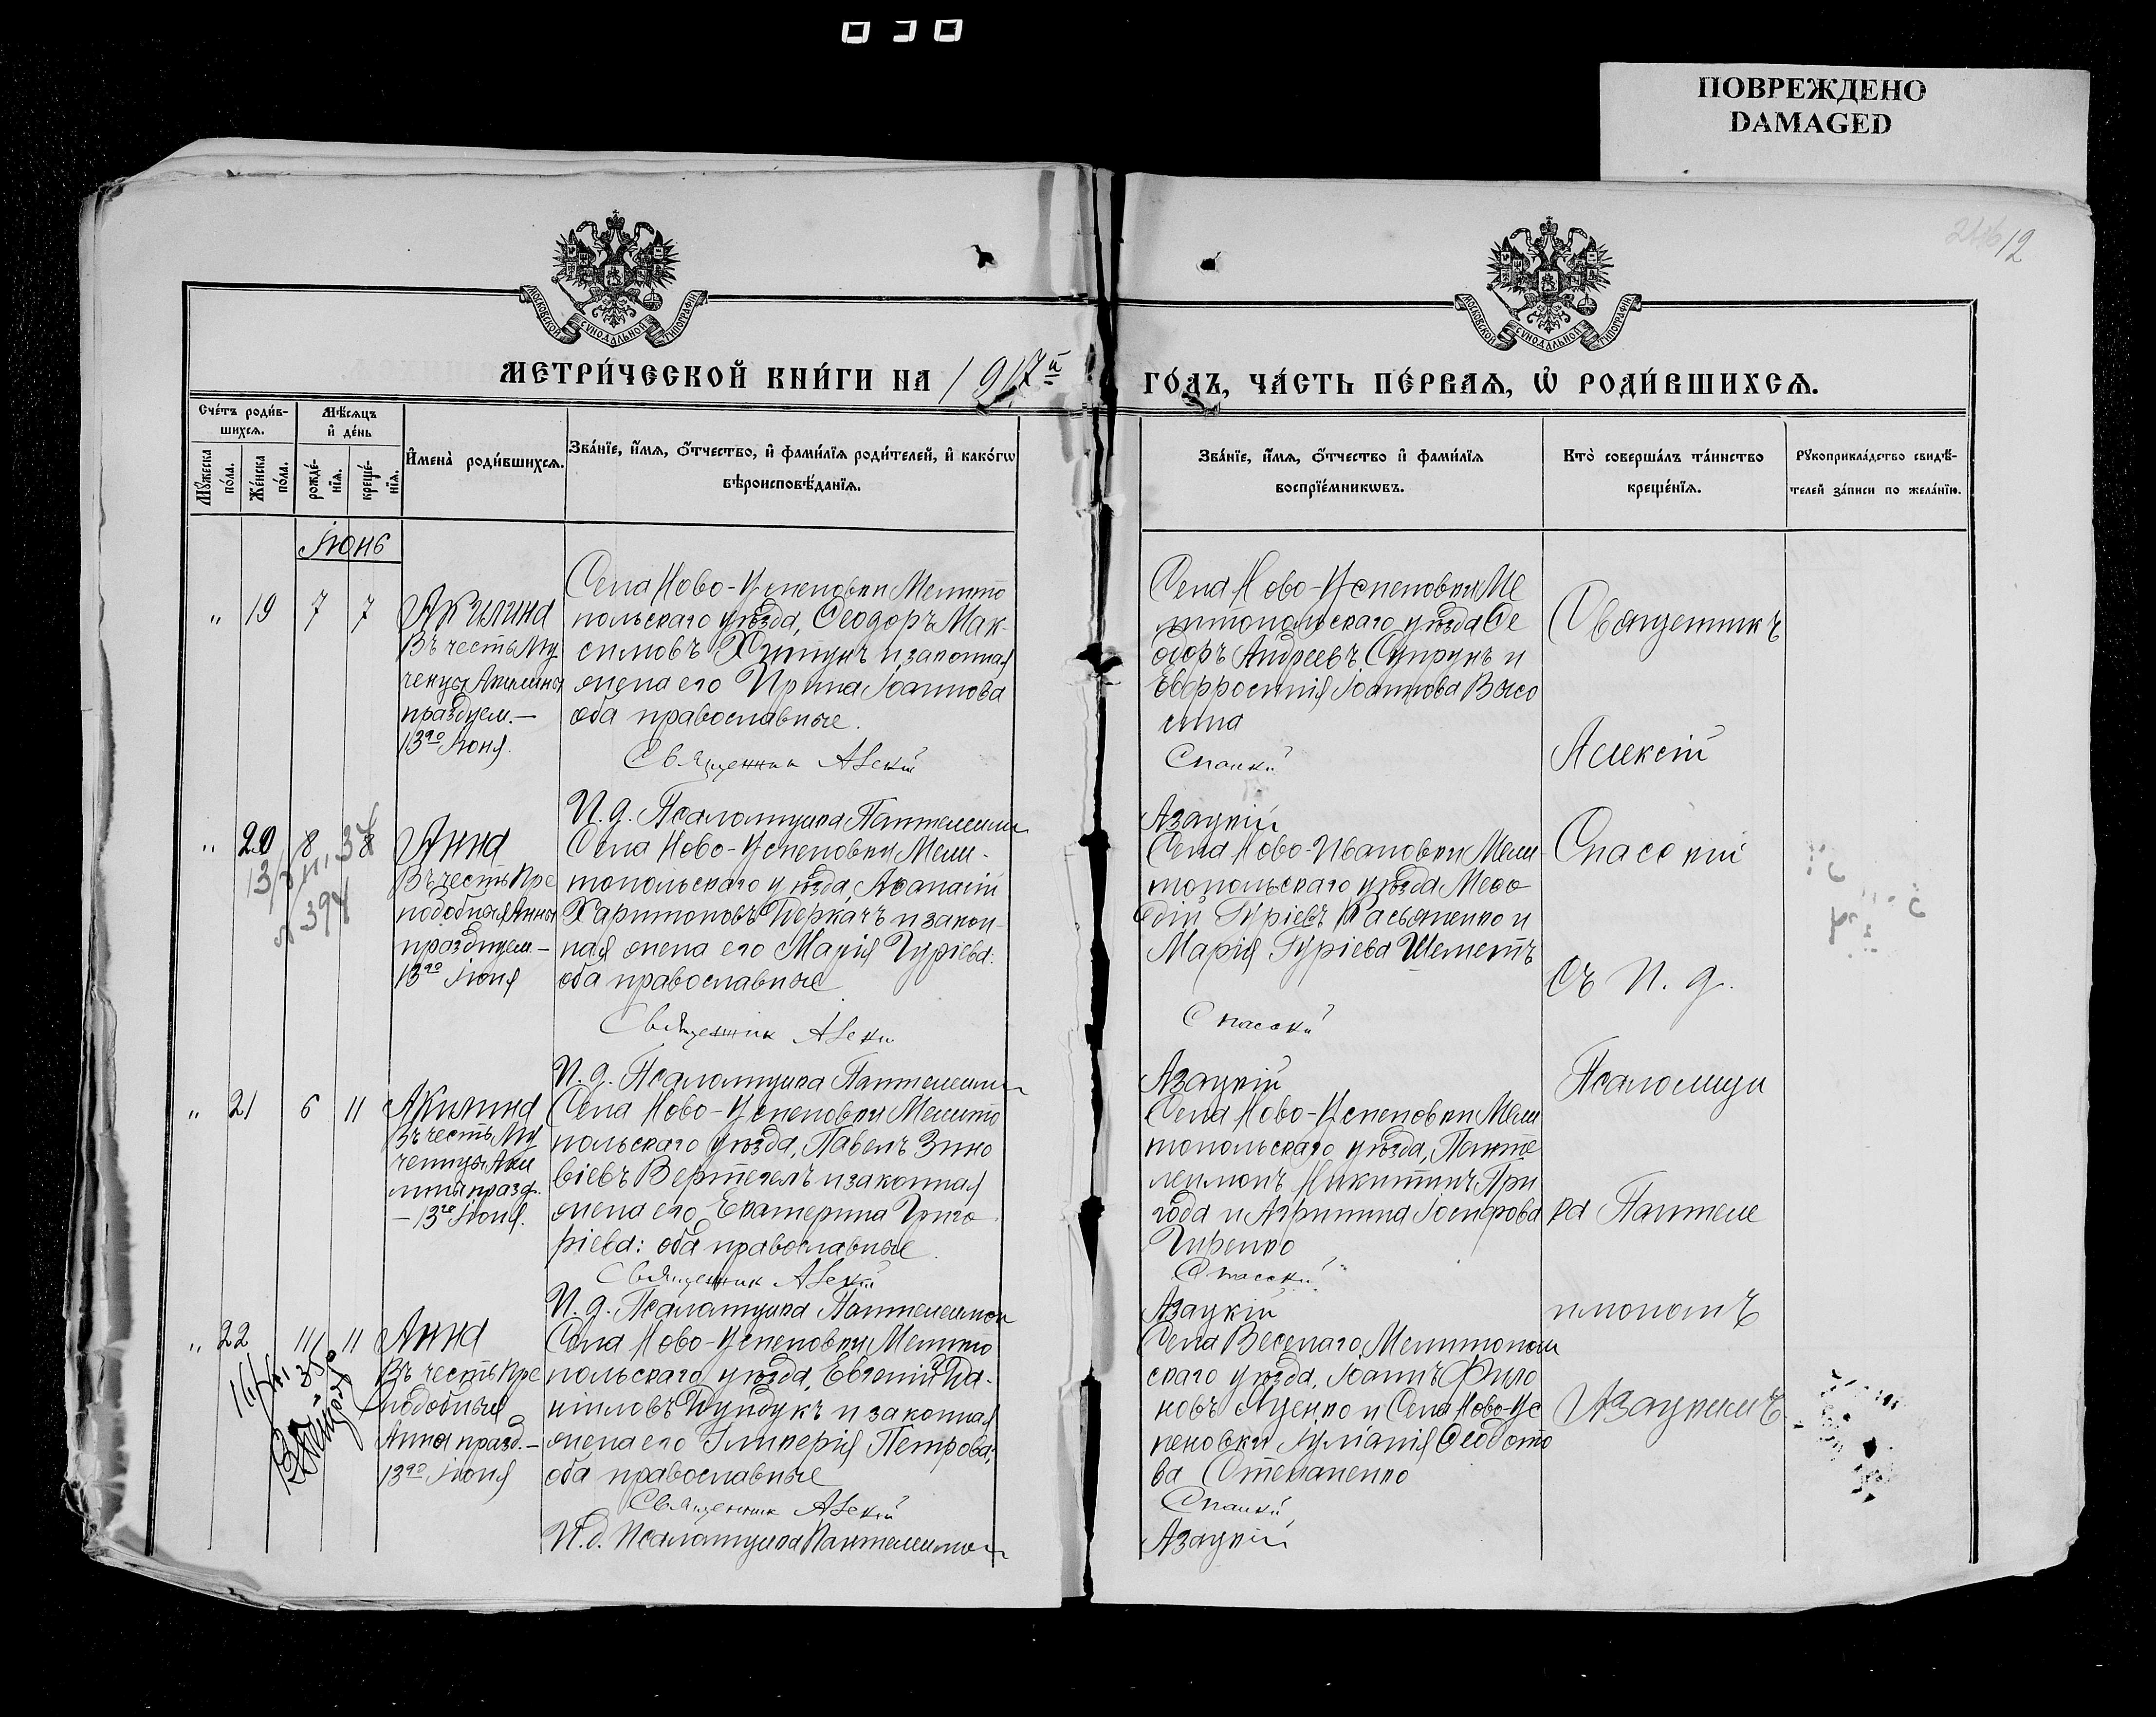 ПОВРЕЖДЕНО
DAMAGED
12
МОСКОВСКОЙ СѴНОДАЛЬНОЙ ТИПОГРАФІИ
МОСКОВСКОЙ СѴНОДАЛЬНОЙ ТИПОГРАФІИ
МЕТРИ́ЧЕСКОЙ КНИ́ГИ НА 1917й
ГО́ДЪ, ЧА́СТЬ ПЕ́РВАЯ, Ѡ РОДИ́ВШИХСЯ.
Сче́тъ роди́в-
шихся.
Мꙋжеска по́ла.
Же́нска по́ла.
Мѣ́сяцъ
и де́нь
рожде́-
нїя.
креще́-
нїя.
Имена̀ роди́вшихся.
Зва́нїе, и́мя, о́тчество, и фами́лїя роди́телей, и како́гѡ
вѣроисповѣ́данїя.
Зва́нїе, и́мя, о́тчество и фами́лїя
воспрїе́мникѡвъ.
Кто̀ соверша́лъ та́инство
креще́нїя.
Рꙋкоприкла́дство свидѣ́-
телей за́писи по жела́нїю.
Іюнь
" 19 7 7
Акилина
Въ честь Му
ченцы Акилины
празднуем.—
13го Іюня.
Села Ново-Успеновки Мелито
польскаго уѣзда, Ѳеодоръ Мак-
симовъ и законная
жена его Ирина Іоаннова
оба православные.
Священник Алекѣй
И. д. Псаломщика Пантелеимон
Села Ново-Успеновки Ме
литопольскаго уѣзда Ѳе
одоръ Андреевъ Супрунъ и
Евфросинія Іоаннова Высо
цина
Спасскій
Азацкій
Священникъ
Алексій
Спасскій
съ И. д.
Псаломщи
ка Пантеле
имономъ
Азацкимъ
" 20 8 8
Анна
Въ честь Пре
подобная Анны
празднуем.—
13го Іюня
Села Ново-Успеновки Мели-
топольскаго уѣзда, Аѳанасій
Харитоновъ Деркачъ и закон-
ная жена его Марія Гуріева:
оба православные
Священник Алекѣй
И. д. Псаломщика Пантелеимон
Села Ново-Ивановки Мели
топольскаго уѣзда Меѳо
дій Гуріевъ Касьяненко и
Марія Гуріева Шеметъ
Спасскій
Азацкій
394
" 21 6 11
Акилина
Въ честь Му
ченицы Аки
лины празд.
— 13го Іюня.
Села Ново-Успеновки Мелито
польскаго уѣзда, Павелъ Зино
віевъ Вертегелъ и законная
жена его Екатерина Григо
ріева: оба православные.
Священник Алекѣй
И. д. Псаломщика Пантелеимон
Села Ново-Успеновки Мели
топольскаго уѣзда, Панте
леимонъ Никитинъ При
года и Агрипина Іосифова
Гиренко
Спасскій
Азацкій
" 22 11 11
Анна
Въ честь Пре
подобныя
Анны празд.—
13го Іюня
Села Ново-Успеновки Мелито
польскаго уѣзда, Евгеній Да-
ніиловъ Дундукъ и законная
жена его Гликерія Петрова:
оба православные
Священник Алекѣй
И. д. Псаломщика Пантелеимон
Села Веселаго, Мелитополь
скаго уѣзда, Іоаннъ Фило
новъ Луценко и Села Ново-Ус
пеновки Іуліанія Ѳеодото
ва Степаненко
Спасскій
Азацкій